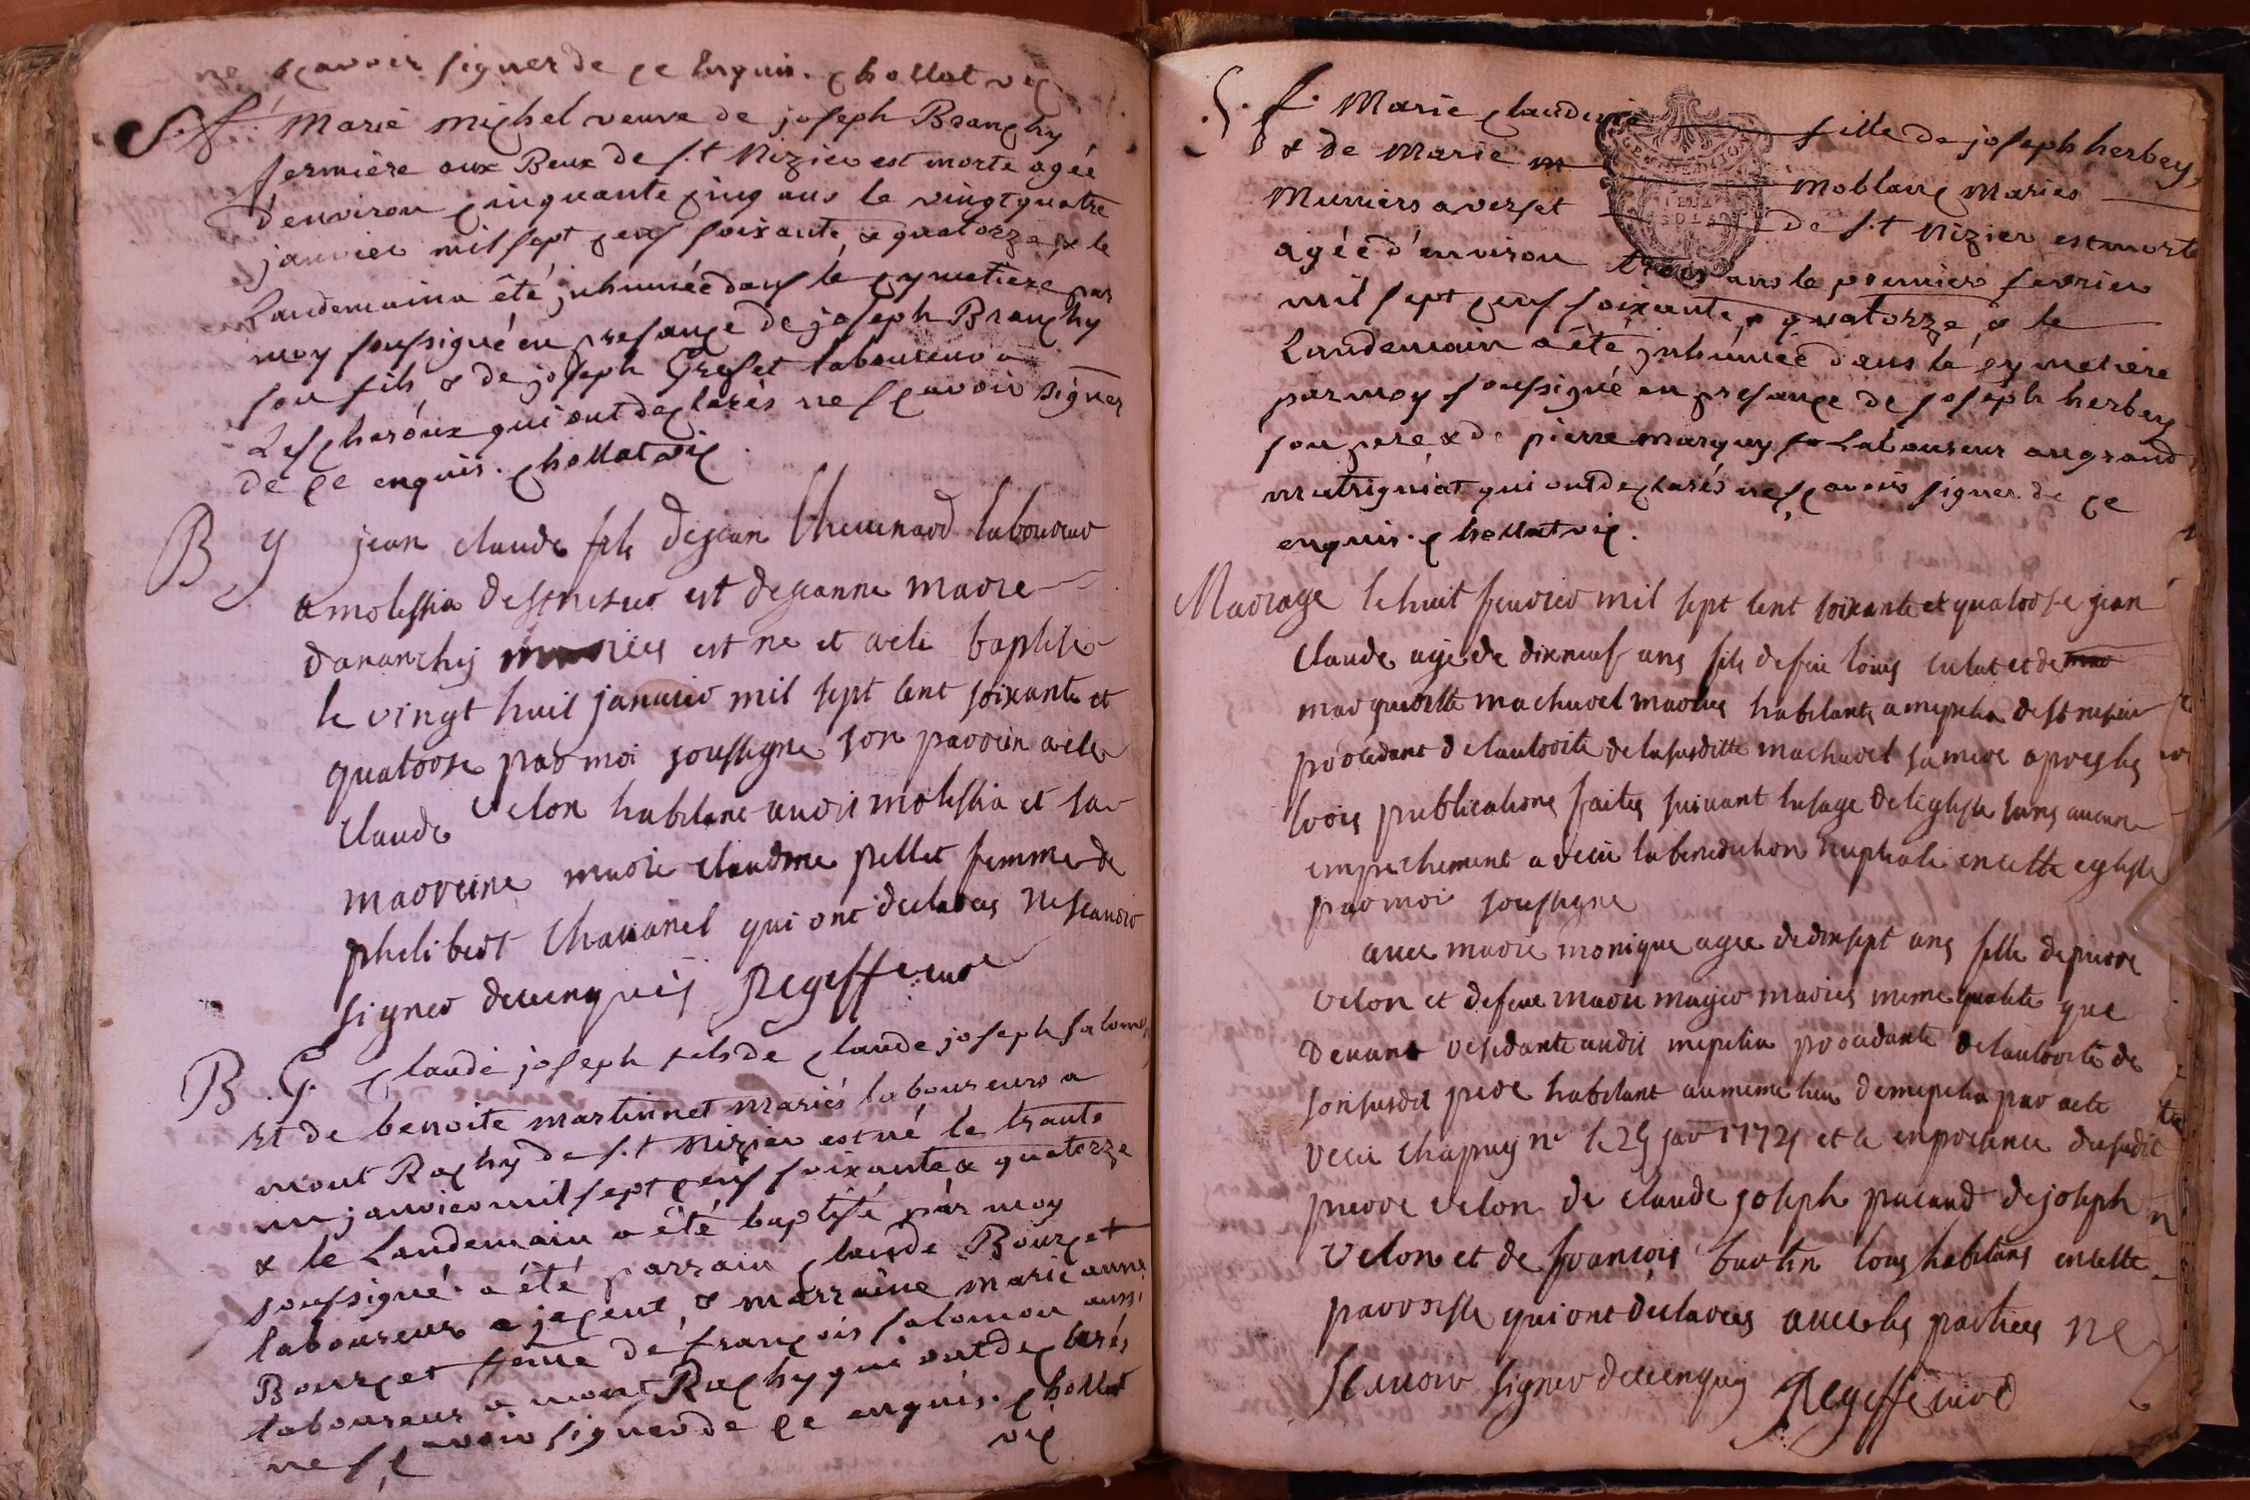 ne sçavoir signer de ce enquis. chollat vic
S. f. Marie michel veuve de joseph Branchy
fermiere aux Beux de s.t Nizier est morte agée
d'environ cinquante cinq ans le vingt quatre
janvier mil sept cens soixante & quatorze, & le
Landemain a été inhumée dans le cymetiere par
moy soussigné en presance de joseph Branchy
son fils & de joseph Gresset laboureur a
Lescheroux qui ont declarés ne sçavoir signer
de ce enquis. chollat vic
B g jean claude fils de jean laboureur
a molissia de st nisier et de jeanne marie
dananchy mariés est ne et a ete baptise
le vingt huit janvier mil sept cent soixante et
quatorse par moi soussigne son parrein a ete
claude velon habitant audit molissia et sa
marreine marie claudine pellet femme de
philibert Chavanel qui ont declares ne scavoir
signer de ce enquis
B. G. Claude joseph fils de claude joseph salomon
et de benoite martinnet mariés laboureurs a
mont Rachy de s.t Nizier est né le trante
un janvier mil sept cens soixante & quatorze
& le Landemain a été baptisé par moy
soussigné. a été parrain claude Bourcet
laboureur a jacent, & marraine marie anne
Bourcet feme de françois salomon aussi
laboureur a mont Rachy qui ont declarés
ne sçavoir signer de ce enquis. chollat
vic
S. f. Marie claudine fille de joseph herbey,
& de Marie moblanc Maries
Muniers a verset de s.t Nizier est morte
agée d'environ trois ans le premier fevrier
mil sept cens soixante & quatorze, & le
Landemain a été inhumée dans le cymetiere
par moy soussigné en presance de joseph herbey
son pere & de pierre laboureur au grand
qui ont declarés ne sçavoir signer de ce
enquis. chollat vic.
Mariage le huit fevrier mil sept cent soixante et quatorse jean
claude age de dixneuf ans fils de feu louis culat et de
marguerite machurel mariés habitante a de st nisier
procedant de lautorite de lasusditte machurel sa mere apres les
trois publications faites suivant lusage de leglise sans aucun
empechement a recu la benediction nuptiale en cette eglise
par moi soussigne
avec marie monique agee de dixsept ans fille de pierre
velon et de feue marie mariés meme qualite que
devant residante audit procedante de lautorite de
son susdit pere habitant au meme lieu de par acte
recu chapuy n.re le 29 janv 1774 et ce en presence dusudit
pierre velon de claude joseph pacaud de joseph
velon et de françois burtin tous habitans en cette
parroisse qui ont declares avec les parties ne
scavoir signer de ce enquis